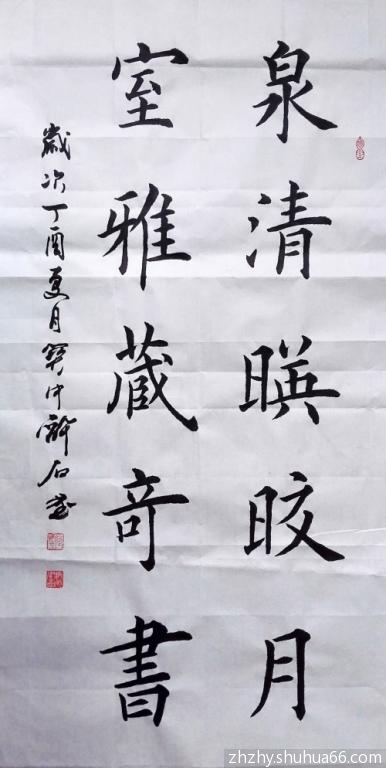 泉清暎晈月
室雅蔵奇書
歲次丁酉夏月
zhzhy.shuhua66.com